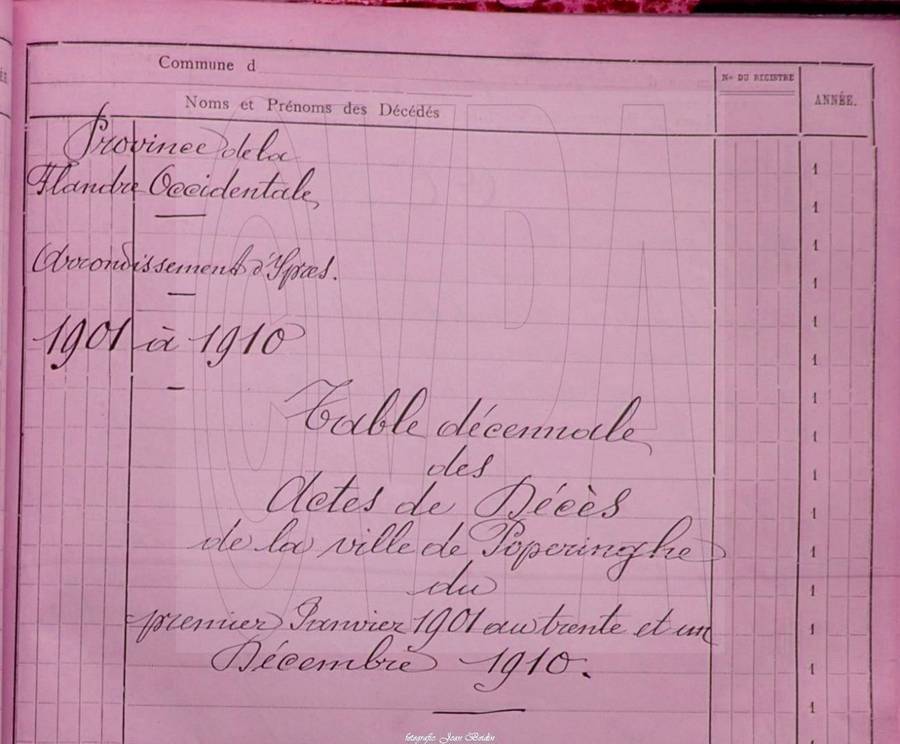 Commune d
Nos DU REGISTRE
ANNÉE.
Noms et Prénoms des Décédés
Province de la
Flandre Occidentale,
Arrondissement d'Ypres.
1901 à 1910
Table décennale
des
Actes de Décès
de la ville de Poperinghe
du
premier Janvier 1901 au trente et un
Décembre 1910.
1
1
1
1
1
1
1
1
1
1
1
1
1
1
1
CVPA
fotografie Jean Bordin